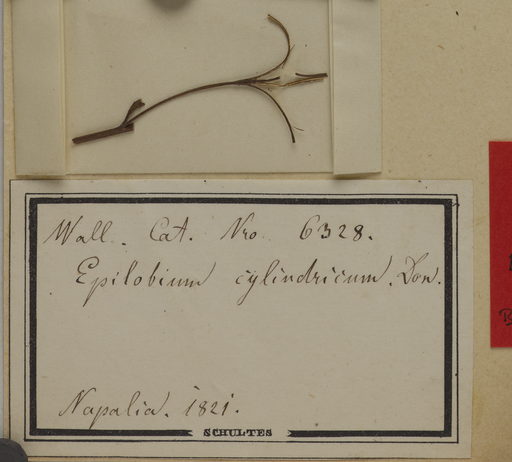 Wall. Cat. Nro. 6328.
Epilobium cylindricum. Don.
Napalia. 1821.
SCHULTES